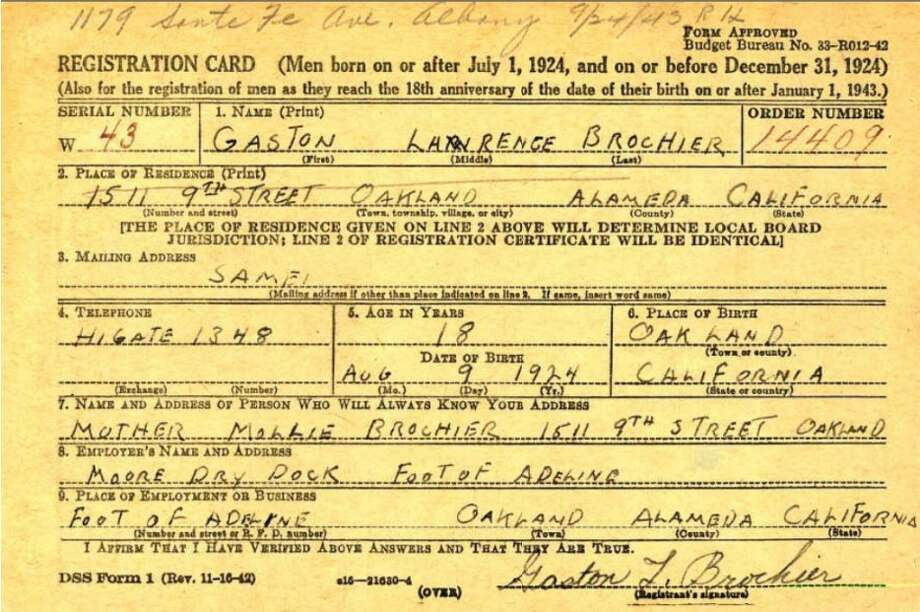 1179 Santa Fe Ave. Albany 9/24/43 RH
FORM APPROVED
Budget Bureau No. 33-R012-42
REGISTRATION CARD (Men born on or after July 1, 1924, and on or before December 31, 1924)
(Also for the registration of men as they reach the 18th anniversary of the date of their birth on or after January 1, 1943.)
SERIAL NUMBER 1. NAME (Print) ORDER NUMBER
W 43 GASTON LAWRENCE BROCHIER 14409
(First) (Middle) (Last)
2. PLACE OF RESIDENCE (Print)
1511 9TH STREET OAKLAND ALAMEDA CALIFORNIA
(Number and street) (Town, township, village, or city) (County) (State)
[THE PLACE OF RESIDENCE GIVEN ON LINE 2 ABOVE WILL DETERMINE LOCAL BOARD
JURISDICTION; LINE 2 OF REGISTRATION CERTIFICATE WILL BE IDENTICAL]
3. MAILING ADDRESS
SAME
(Mailing address if other than place indicated on line 2. If same, insert word same)
4. TELEPHONE 5. AGE IN YEARS 6. PLACE OF BIRTH
HIGATE 1348 18 OAKLAND
DATE OF BIRTH (Town or county)
AUG 9 1924 CALIFORNIA
(Exchange) (Number) (Mo.) (Day) (Yr.) (State or country)
7. NAME AND ADDRESS OF PERSON WHO WILL ALWAYS KNOW YOUR ADDRESS
MOTHER MOLLIE BROCHIER 1511 9TH STREET OAKLAND
8. EMPLOYER'S NAME AND ADDRESS
MOORE DRY DOCK FOOT OF ADELINE
9. PLACE OF EMPLOYMENT OR BUSINESS
FOOT OF ADELINE OAKLAND ALAMEDA CALIFORNIA
(Number and street or R. F. D. number) (Town) (County) (State)
I AFFIRM THAT I HAVE VERIFIED ABOVE ANSWERS AND THAT THEY ARE TRUE.
DSS Form 1 (Rev. 11-16-42) e16—21630-4 Gaston L. Brochier
(OVER) (Registrant's signature)